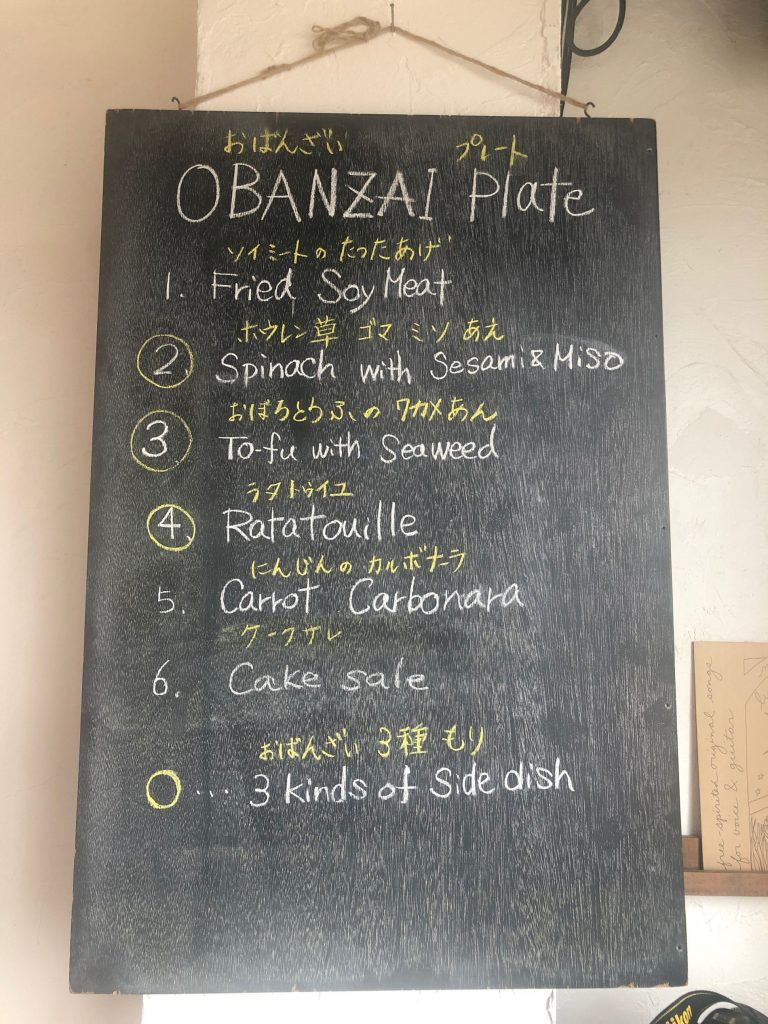 おばんざい プレート
OBANZAI Plate
ソイミートの たったあげ
1. Fried Soy Meat
ホウレン草 ゴマ ミソ あえ
2. Spinach with Sesami & Miso
おぼろとうふの ワカメあん
3 To-fu with Seaweed
ラタトゥイユ
4. Ratatouille
にんじんの カルボナーラ
5. Carrot Carbonara
ケークサレ
6. Cake sale
おばんざい 3種 もり
○ … 3 kinds of Side dish
free-spirited original songs
for voice & guitar
Nikon